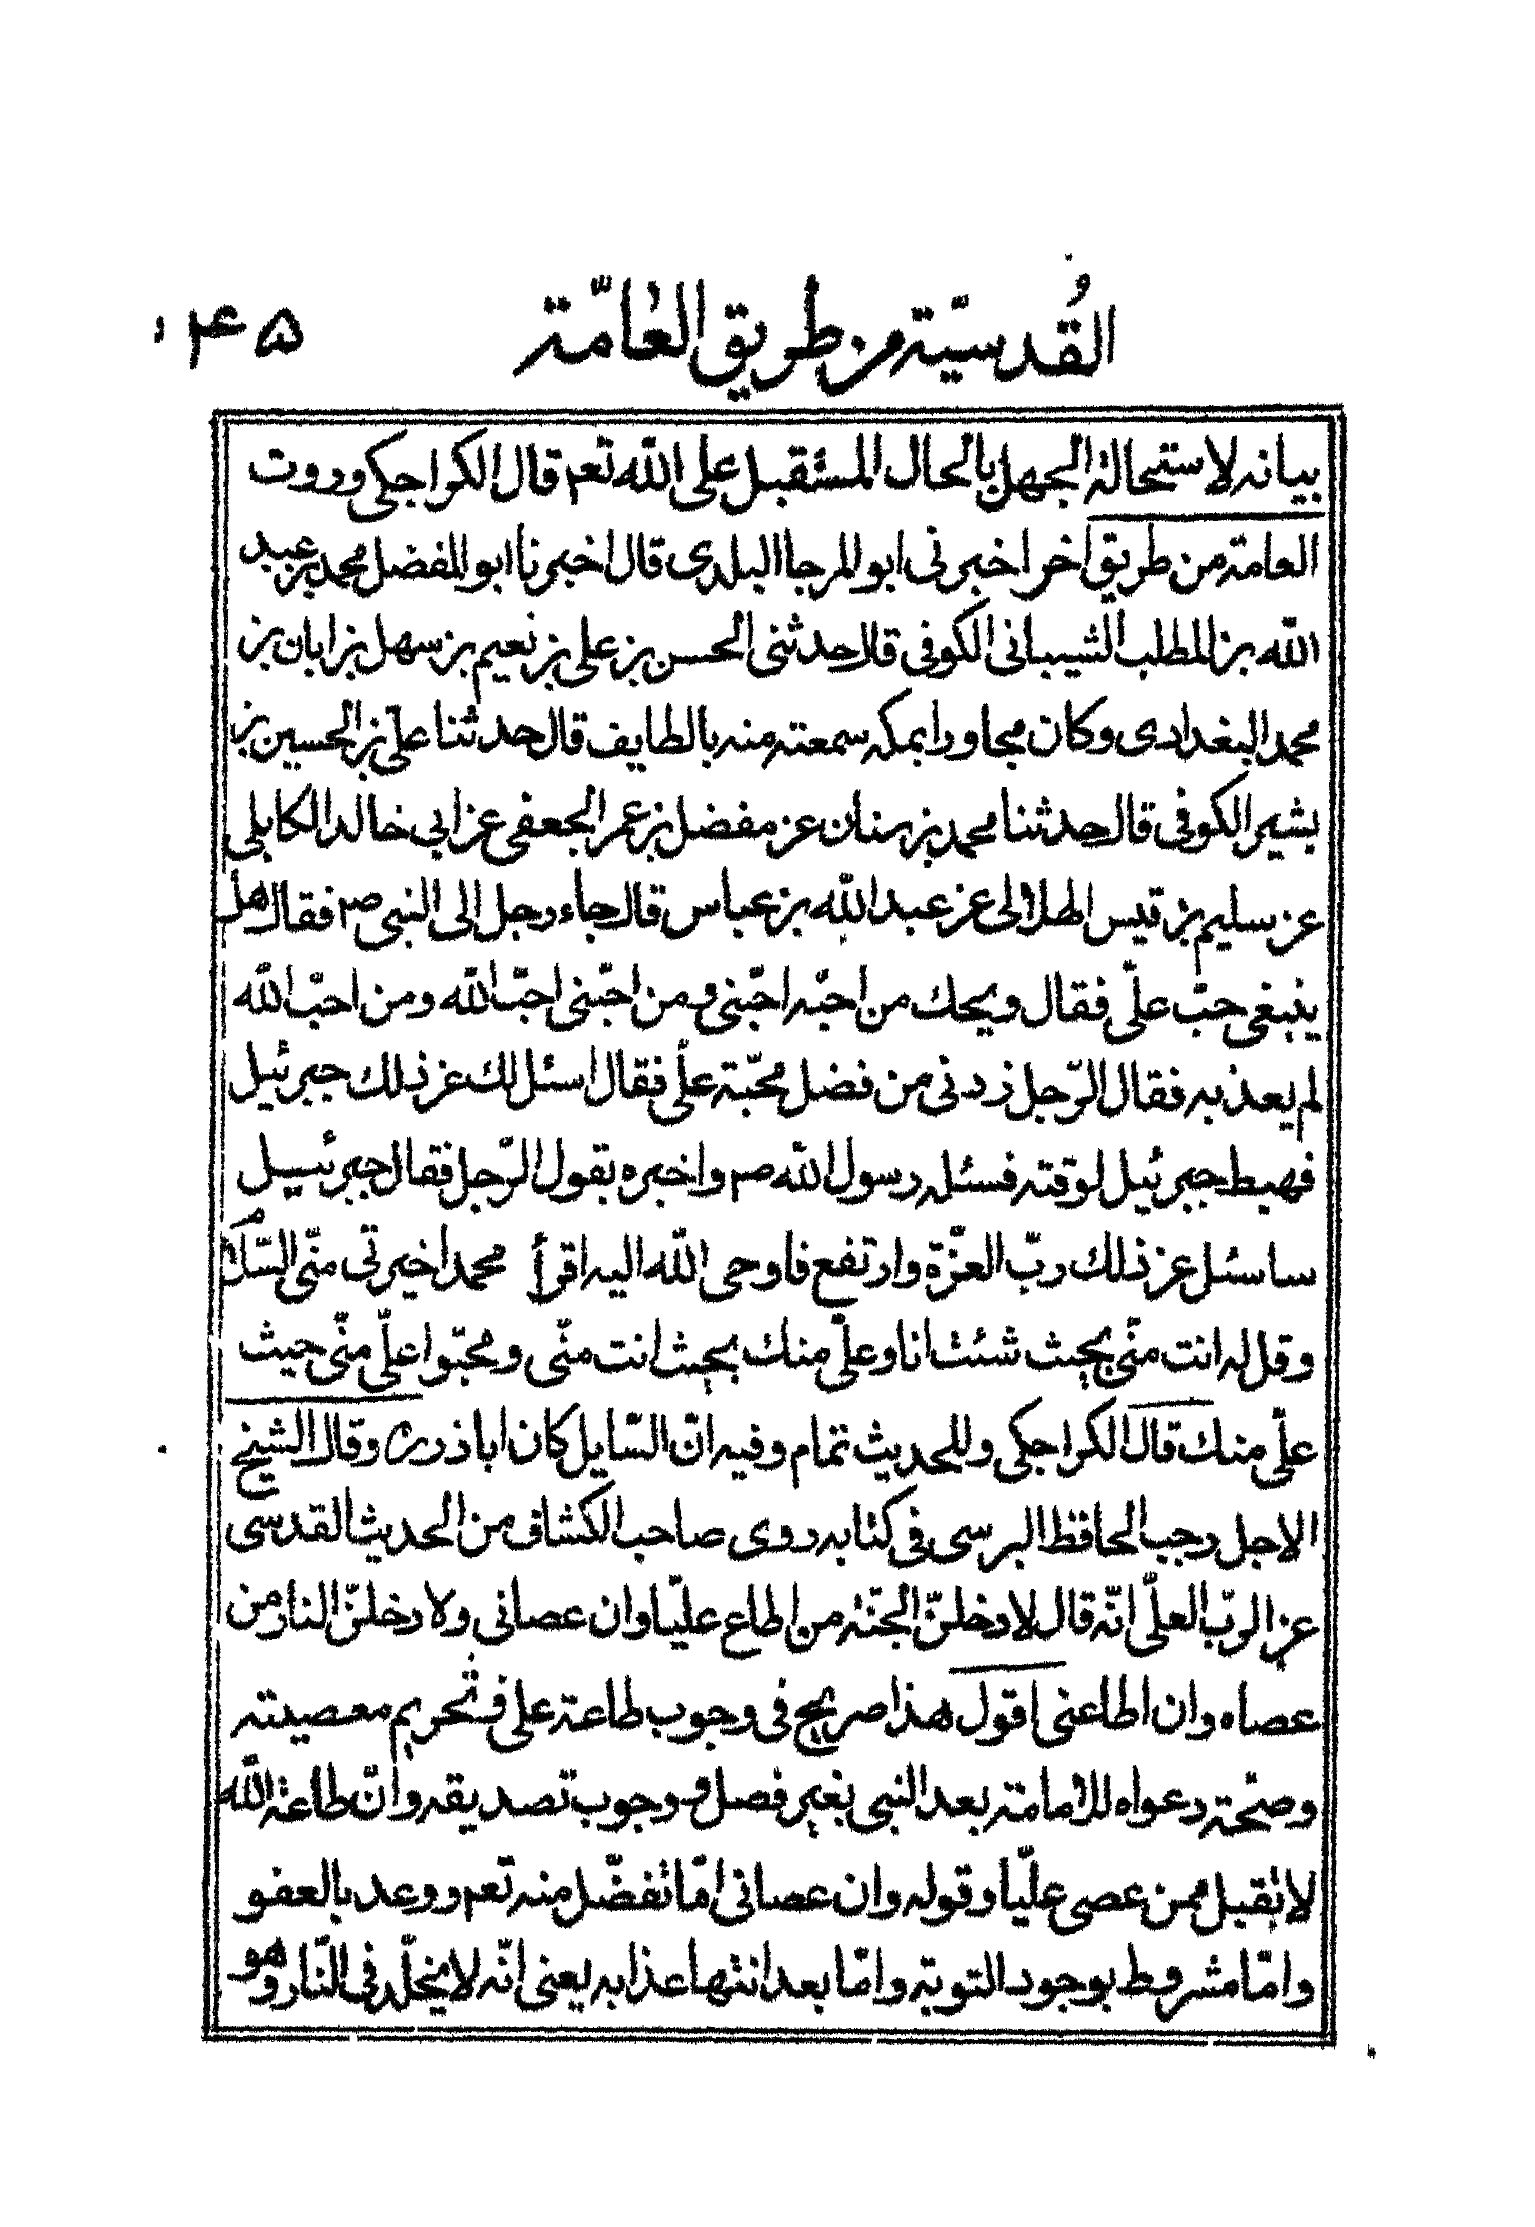 القُدسيّة من طريق العامّة ۱۴۵
بيانه لاستحالة الجهل بالحال المستقبل على الله تعم قال الكراجكى وروت
العامّة من طريق اخر اخبرنى ابو المرجا البلدى قال اخبرنا ابو المفضل محمد بن عبيد
الله بن المطلب الشيبانى الكوفى قال حدثنى الحسن بن على بن نعيم بن سهل بن ابان بن
محمد البغدادى وكان مجاورا بمكه سمعته منه بالطايف قال حدثنا علىّ بن الحسين بن
بشير الكوفى قال حدثنا محمد بن سنان عن مفضل بن عمر الجعفى عن ابى خالد الكابلى
عن سليم بن قيس الهلالى عن عبد الله بن عباس قال جاء رجل الى النبى صم فقال هل
ينبغى حبّ علىّ فقال ويحك من احبّه احبّنى ومن احبّنى احبّ الله ومن احبّ الله
لم يعذبه فقال الرّجل زدنى من فضل محبّة علىّ فقال اسئل لك عن ذلك جبرئيل
فهبط جبرئيل لوقته فسئله رسول الله صم واخبره بقول الرّجل فقال جبرئيل
ساسئل عن ذلك ربّ العزّة وارتفع فاوحى الله اليه اقرأ محمد اخيرتى منّى السّلام
وقل له انت منّى بحيث شئت انا وعلىّ منك بحيث انت منّى ومحبّوا علىّ منّى حيث
علىّ منك قال الكراجكى وللحديث تمام وفيه انّ السّايل كان اباذر ره وقال الشيخ
الاجل رجب الحافظ البرسى فى كتابه روى صاحب الكشاف من الحديث القدسى
عن الربّ العلّى انّه قال لادخلنّ الجنّة من اطاع عليّا وان عصانى ولادخلنّ النار من
عصاه وان اطاعنى اقول هذا صريح فى وجوب طاعة على و تحريم معصيته
وصحّة دعواه للامامة بعد النبى بغير فصل و وجوب تصديقه وانّ طاعة الله
لا تقبل ممن عصى عليّا وقوله وان عصانى امّا تفضّل منه تعم ووعد بالعفو
وامّا مشروط بوجود التوبة وامّا بعد انتهاء عذابه يعنى انّه لا يخلّد فى النّار وهو